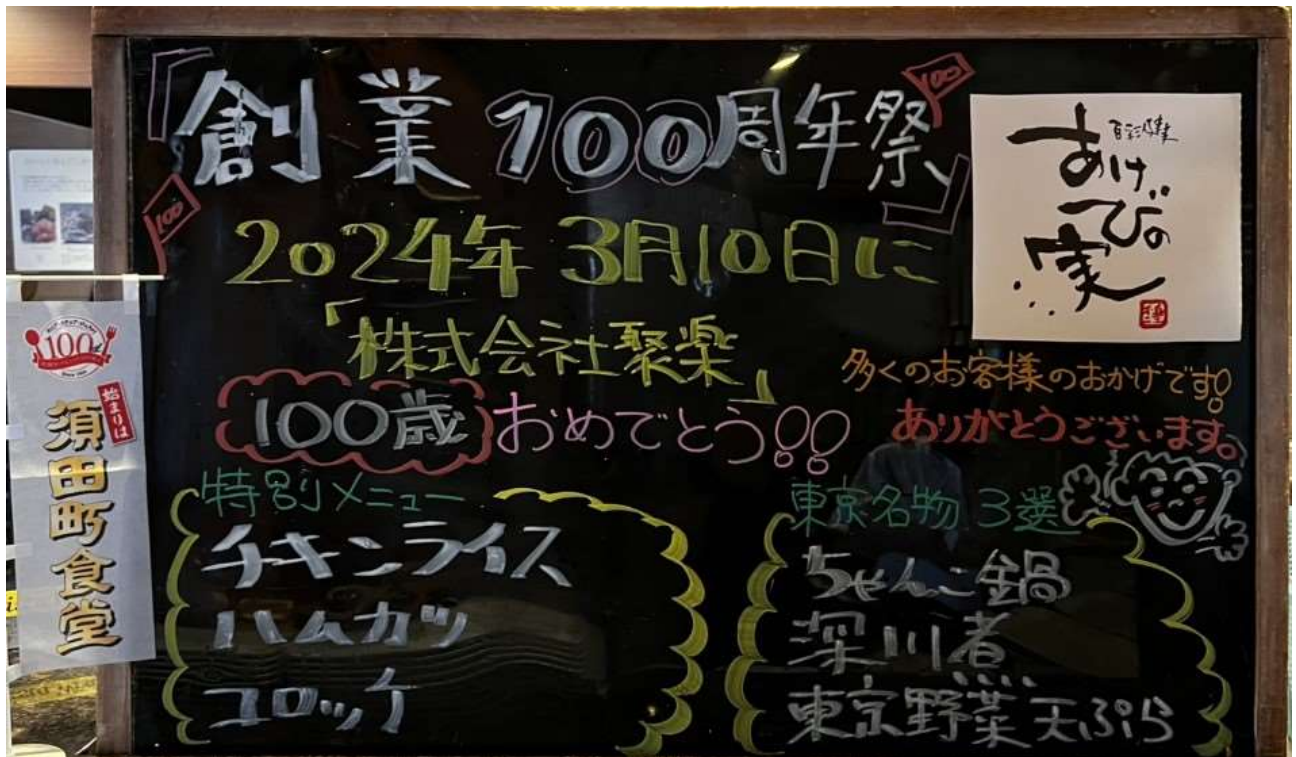 『創業100周年祭』
100
100
2024年 3月10日に
「株式会社聚楽」
100歳 おめでとう!!
あけびの実
多くのお客様のおかげです!
ありがとうございます。
特別メニュー
チキンライス
ハムカツ
コロッケ
東京名物 3選
ちゃんこ鍋
深川煮
東京野菜天ぷら
100
始まりは
須田町食堂